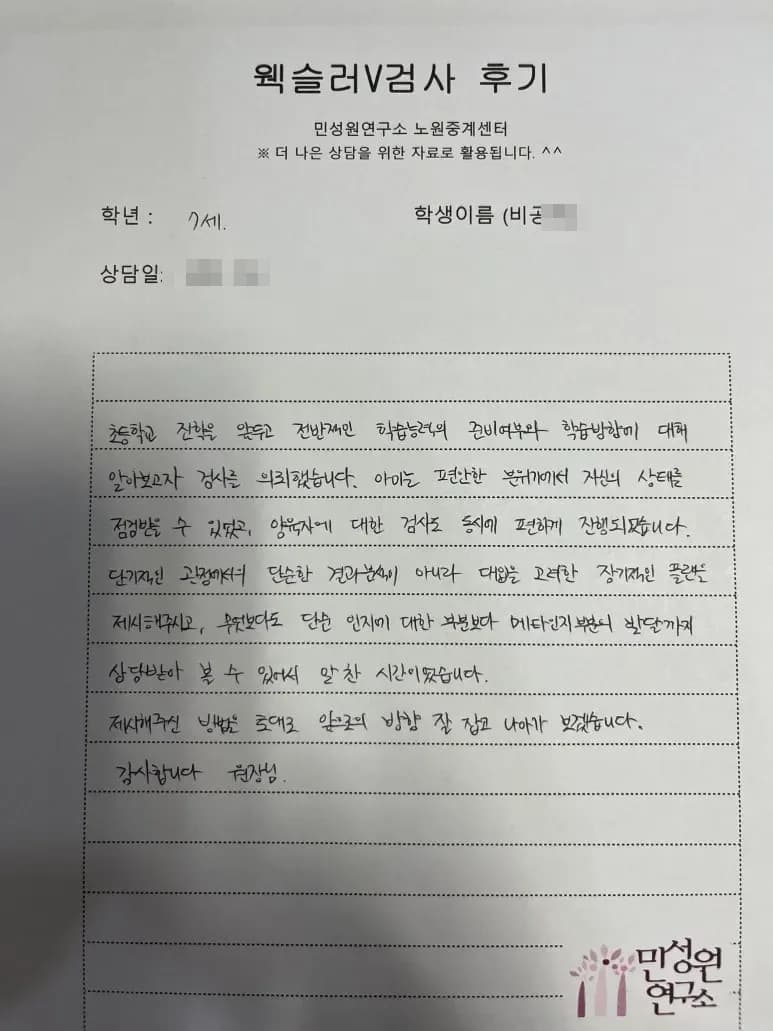 웩슬러V검사 후기
민성원연구소 노원중계센터
※ 더 나은 상담을 위한 자료로 활용됩니다. ^^
학년 : 7세. 학생이름 (비공
상담일:
초등학교 진학을 앞두고 전반적인 학습능력의 준비여부와 학습방향에 대해
알아보고자 검사를 의뢰했습니다. 아이는 편안한 분위기에서 자신의 상태를
점검받을 수 있었고, 양육자에 대한 검사도 동시에 편하게 진행되었습니다.
단기적인 관점에서의 단순한 결과분석이 아니라 대입을 고려한 장기적인 플랜을
제시해주시고, 무엇보다도 단순 인지에 대한 부분보다 메타인지부분의 발달까지
상담받아 볼 수 있어서 알찬 시간이었습니다.
제시해주신 방법을 토대로 앞으로의 방향 잘 잡고 나아가 보겠습니다.
감사합니다 원장님.
민성원
연구소